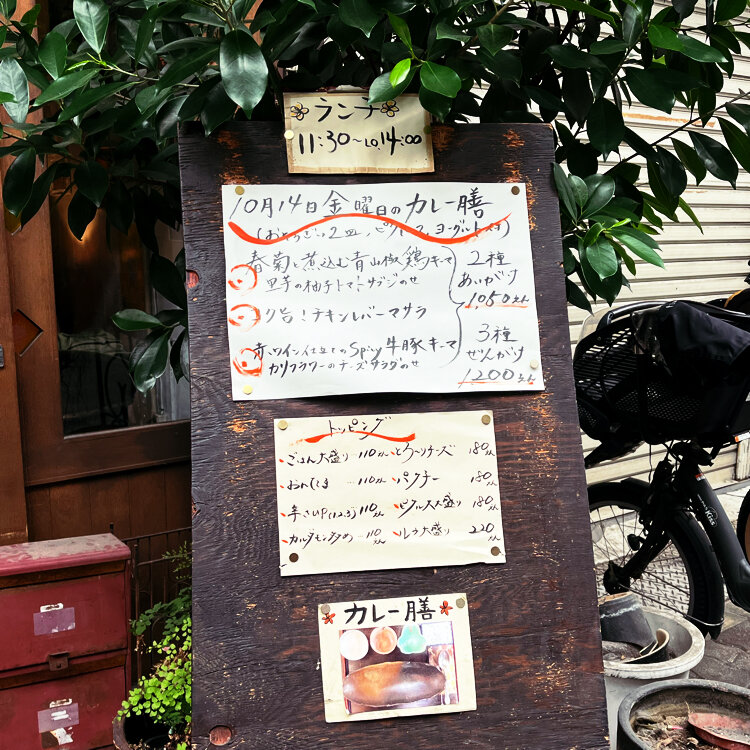 ランチ
11:30~L.O.14:00
10月14日金曜日のカレー膳
(おとうじの2皿、ピクルス、ヨーグルト付)
春菊と煮込む青山椒鶏キーマ
里芋の柚子トマトサブジのせ
り台!チキンレバーマサラ
赤ワイン仕立てのSpicy牛豚キーマ
カリフラワーのチーズサラダのせ
2種
あいがけ
1,050えん
3種
ぜんがけ
1200えん
トッピング
ごはん大盛り…110えん
とろ〜りチーズ 180えん
おんたま …110えん
パクチー 180えん
辛さUP(1,2,3) 110えん
ピクルス大盛り 180えん
…110えん
ルウ大盛り 220えん
カレー膳